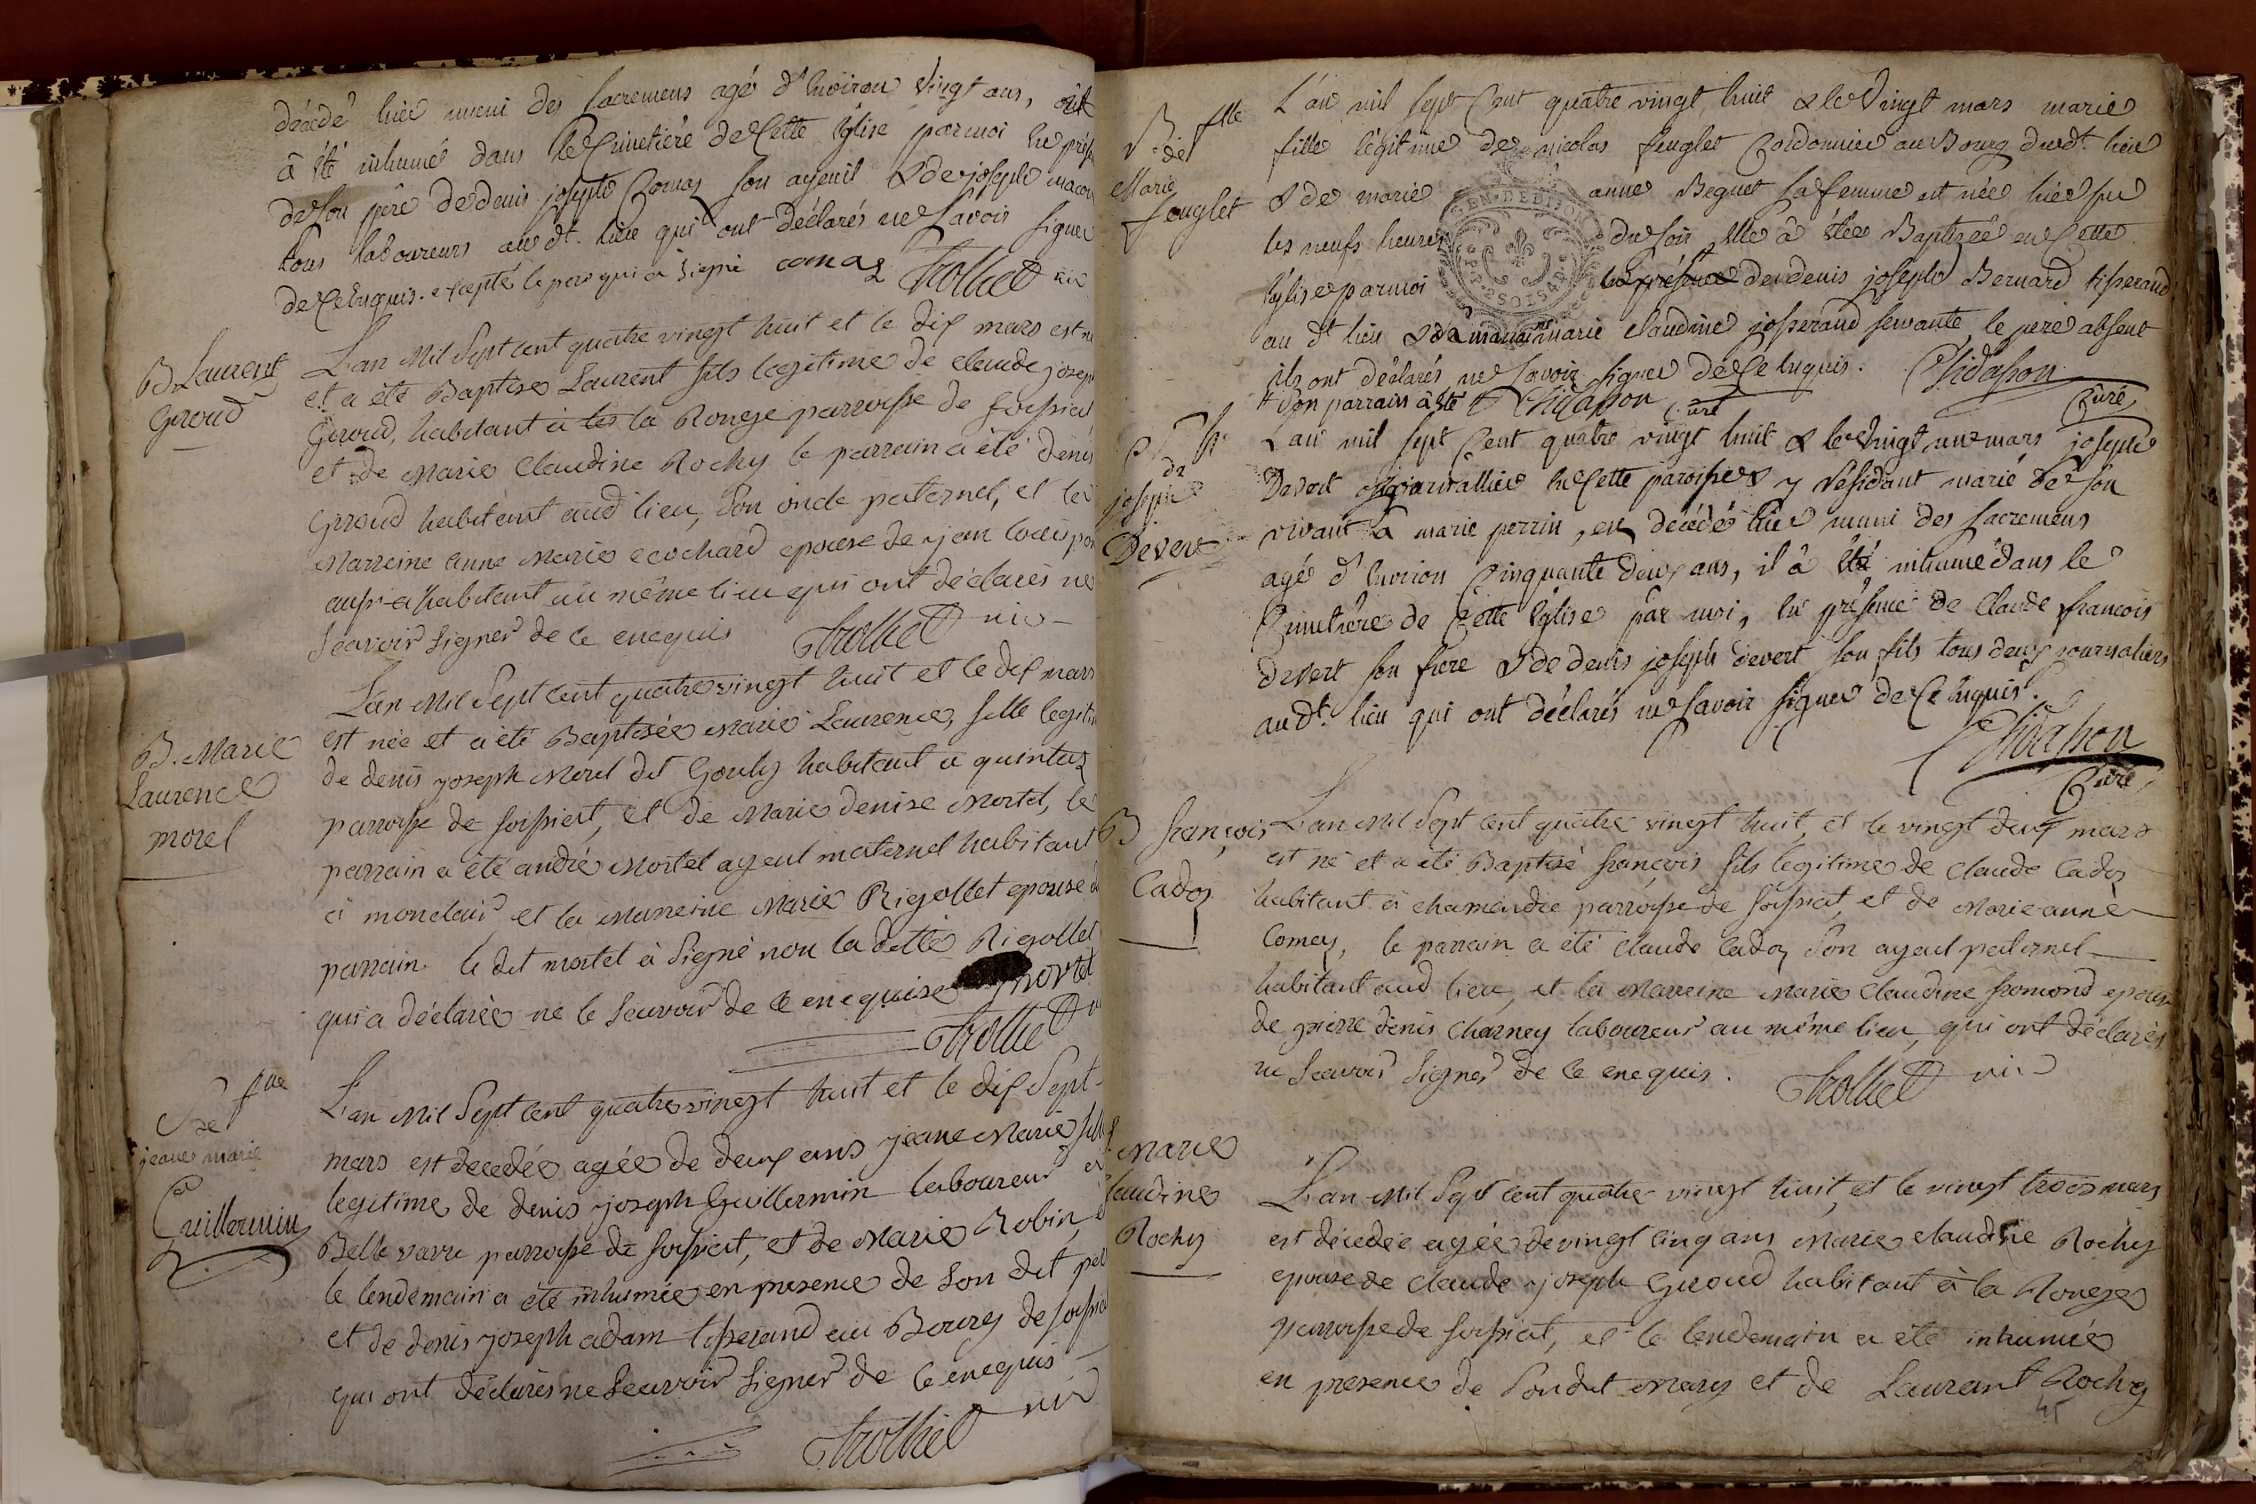 décédé hier muni des sacremens agé d'Environ Vingt ans,
à été inhumé dans le Cimetière de Cette Eglise par moi En prés
de son père de denis joseph Comas son ayeuil & de joseph macon
tous laboureurs audt. lieu qui ont déclarés ne savoir signer
de Ce Enquis. excepté le pere qui a signé comas Trolliet vic
B. Laurent
Giroud
L'an Mil Sept cent quatre vingt huit et le dix mars est n
et a été Baptisé Laurent fils legitime de claude joseph
Giroud, habitant à les la Rouge parroisse de foissiat
et de Marie Claudine Rochy le parrain a été denis
Giroud habitant aud lieu, son oncle paternel, et la
Marreine anne Marie ecochard epouse de jean
aussi habitant au même lieu qui ont déclarés ne
Scavoir signer de ce enequis Trolliet vic
B. Marie
Laurence
morel
L'an Mil Sept cent quatre vingt huit et le dix mars
est née et a été Baptisée Marie Laurence, fille legiti
de denis joseph Morel dit Gouly habitant a quintas
parroisse de foissiat, et de Marie denise Mortel, le
parrain a été andré Mortel ayeul maternel habitant
à monclair et la Marreine Marie Rigollet epouse d
parrain le dit mortel à signé non la ditte Rigollet
qui a déclarée ne le scavoir de ce enequise Mortel
Trolliet v
S re fne
De
jeane marie
Guillermin
L'an Mil Sept cent quatre vingt huit et le dix Sept
mars est decedée agée de deux ans jeane Marie fille
legitime de denis joseph Guillermin laboureur a
Belle varre parroisse de foissiat, et de Marie Robin,
le lendemain a été inhumée en presence de Son dit per
et de denis joseph adam tisserand au Bourg de foissia
qui ont déclarés ne Scavoir signer de ce enequis
Trolliet vic
B. flle
de
Marie
fenglet
L'an mil sept Cent quatre vingt huit & le Vingt mars marie
fille légitime de nicolas fenglet Cordonnier au Bourg dudt. lieu
& de marie anne Beguet sa femme est née hier sur
les neufs heures du soir, Elle à étée Baptizée en Cette
Eglise par moi En présence de denis joseph Bernard tisserand
au dt lieu & de marie claudine josserand servante le pere absent
ils ont déclarés ne savoir signer de Ce Enquis. Chidasson
Curé
+ son parrain à été Chidasson Curé
S re h
de
joseph
Devert
L'an mil sept Cent quatre vingt huit & le Vingt un mars joseph
Devert journallier En Cette paroisse & y Résidant marié de son
vivant à marie perrin, est décédé hier muni des sacremens
agé d'Environ Cinquante deux ans, il à été inhumé dans le
Cimetière de Cette Eglise par moi, En présence de Claude francois
devert son frere & de denis joseph devert son fils tous deux journaliers
audt. lieu qui ont déclarés ne savoir signer de Ce Enquis.
Chidasson
Curé
B françois
Cadoz
L'an Mil Sept cent quatre vingt huit, et le vingt deux mars
est né et a été Baptisé françois fils legitime de claude Cadoz
habitant à chamandre parroisse de foissiat, et de Marie anne
Comas, le parrain a été claude Cadoz Son ayeul paternel
habitant aud lieu, et la Marreine Marie claudine fromond epouse
de pierre denis Charney laboureur au même lieu, qui ont déclarés
ne Scavoir signer de ce enequis. Trolliet vic
Marie
laudine
Rochy
L'an Mil Sept cent quatre vingt huit, et le vingt trois mars
est décedée agée de vingt cinq ans Marie claudine Rochy
epouse de claude joseph Giroud habitant à la Rouge
parroisse de foissiat, et le lendemain a été inhumée
en presence de Son dit Mary et de Laurent Rochy
45